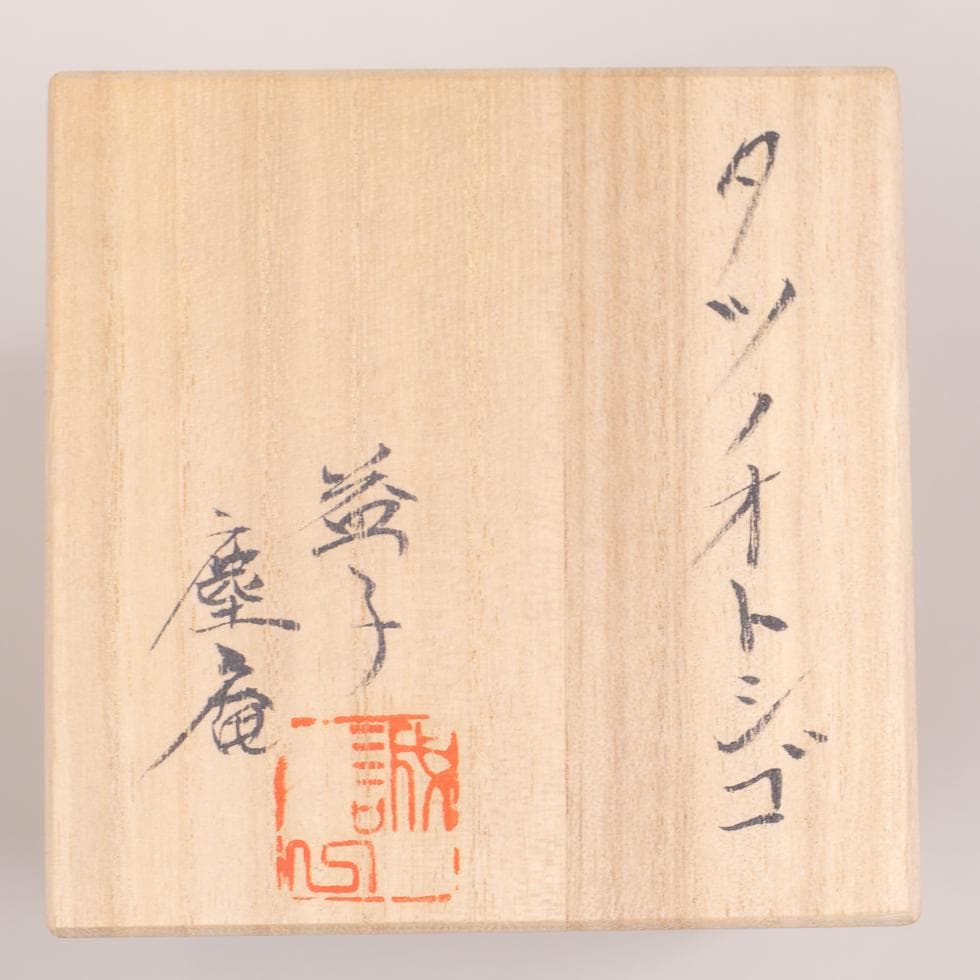 タツノオトシゴ
益子
塵庵
誠